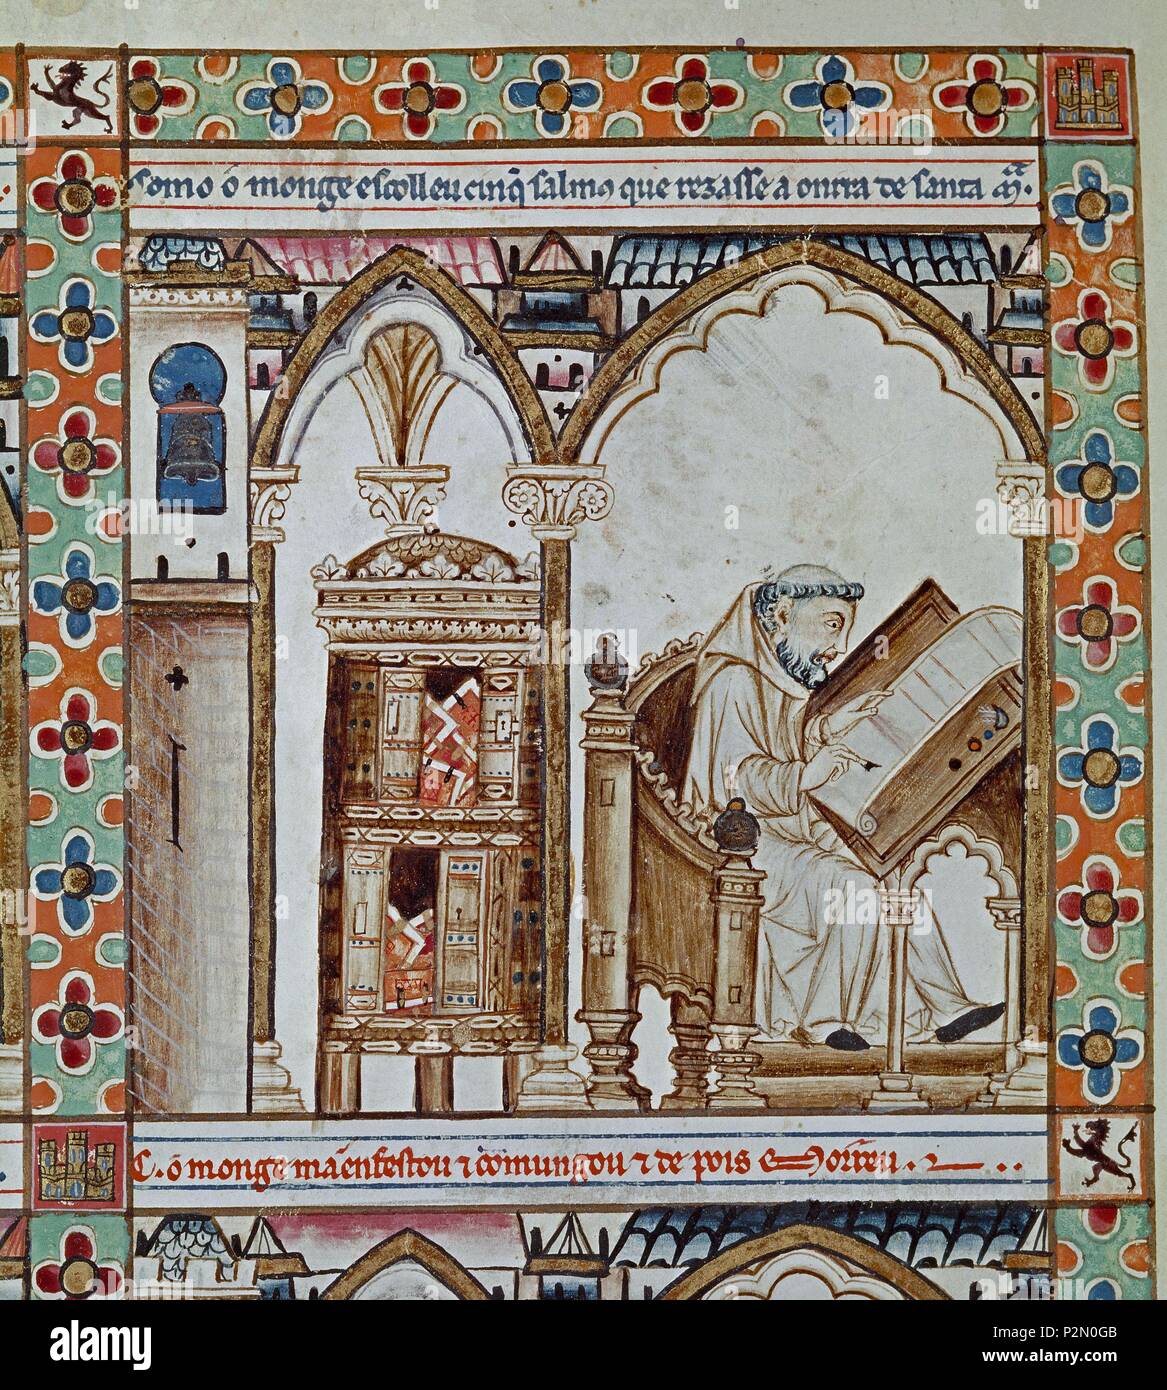 Como ũ monge escolleu cinq̃ salmos que rezasse a onrra de santa Mª.
C. o monge mãenfestou ⁊ cõmungou ⁊ de pois e morreu.
alamy
Image ID: P2N0GB
www.alamy.com